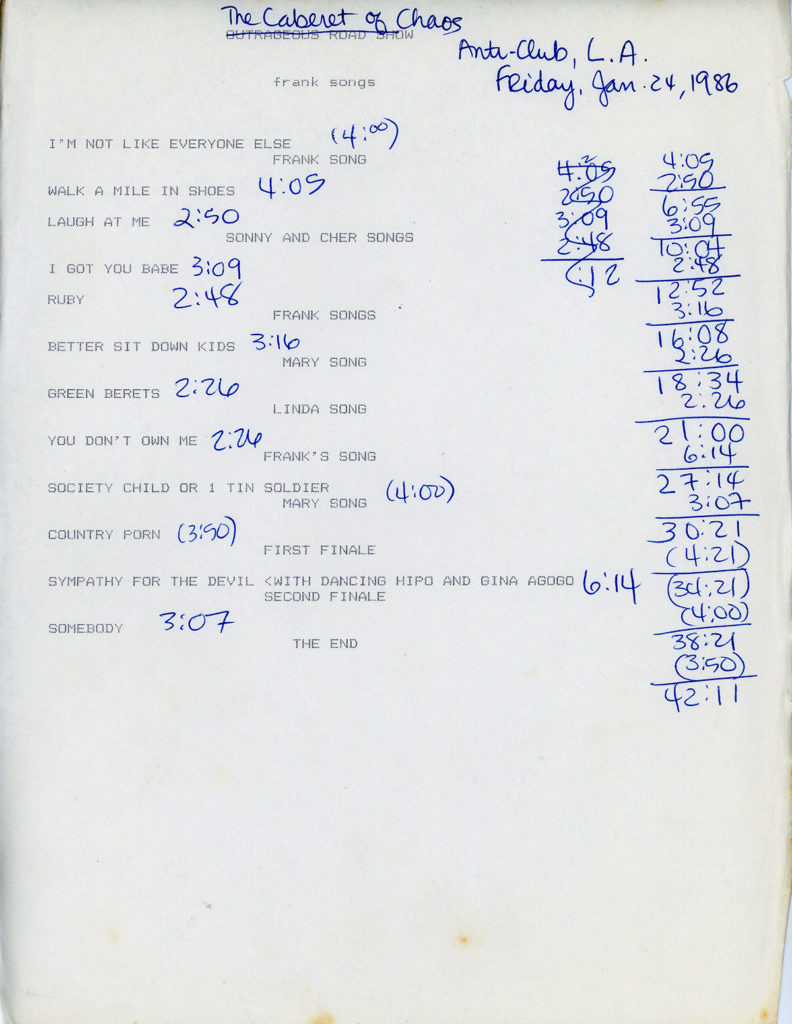 The Caberet of Chaos
OUTRAGEOUS ROAD SHOW
Anti-Club, L.A.
Friday, Jan. 24, 1986
frank songs
I'M NOT LIKE EVERYONE ELSE (4:00)
FRANK SONG
WALK A MILE IN SHOES 4:05
LAUGH AT ME 2:50
SONNY AND CHER SONGS
I GOT YOU BABE 3:09
RUBY 2:48
FRANK SONGS
BETTER SIT DOWN KIDS 3:16
MARY SONG
GREEN BERETS 2:26
LINDA SONG
YOU DON'T OWN ME 2:26
FRANK'S SONG
SOCIETY CHILD OR 1 TIN SOLDIER (4:00)
MARY SONG
COUNTRY PORN (3:50)
FIRST FINALE
SYMPATHY FOR THE DEVIL <WITH DANCING HIPO AND GINA AGOGO 6:14
SECOND FINALE
SOMEBODY 3:07
THE END
2
4:05
2:50
3:09
2:48
:12
4:05
2:50
6:55
3:09
10:04
2:48
12:52
3:16
16:08
2:26
18:34
2:26
21:00
6:14
27:14
3:07
30:21
(4:21)
(34:21)
(4:00)
38:21
(3:50)
42:11